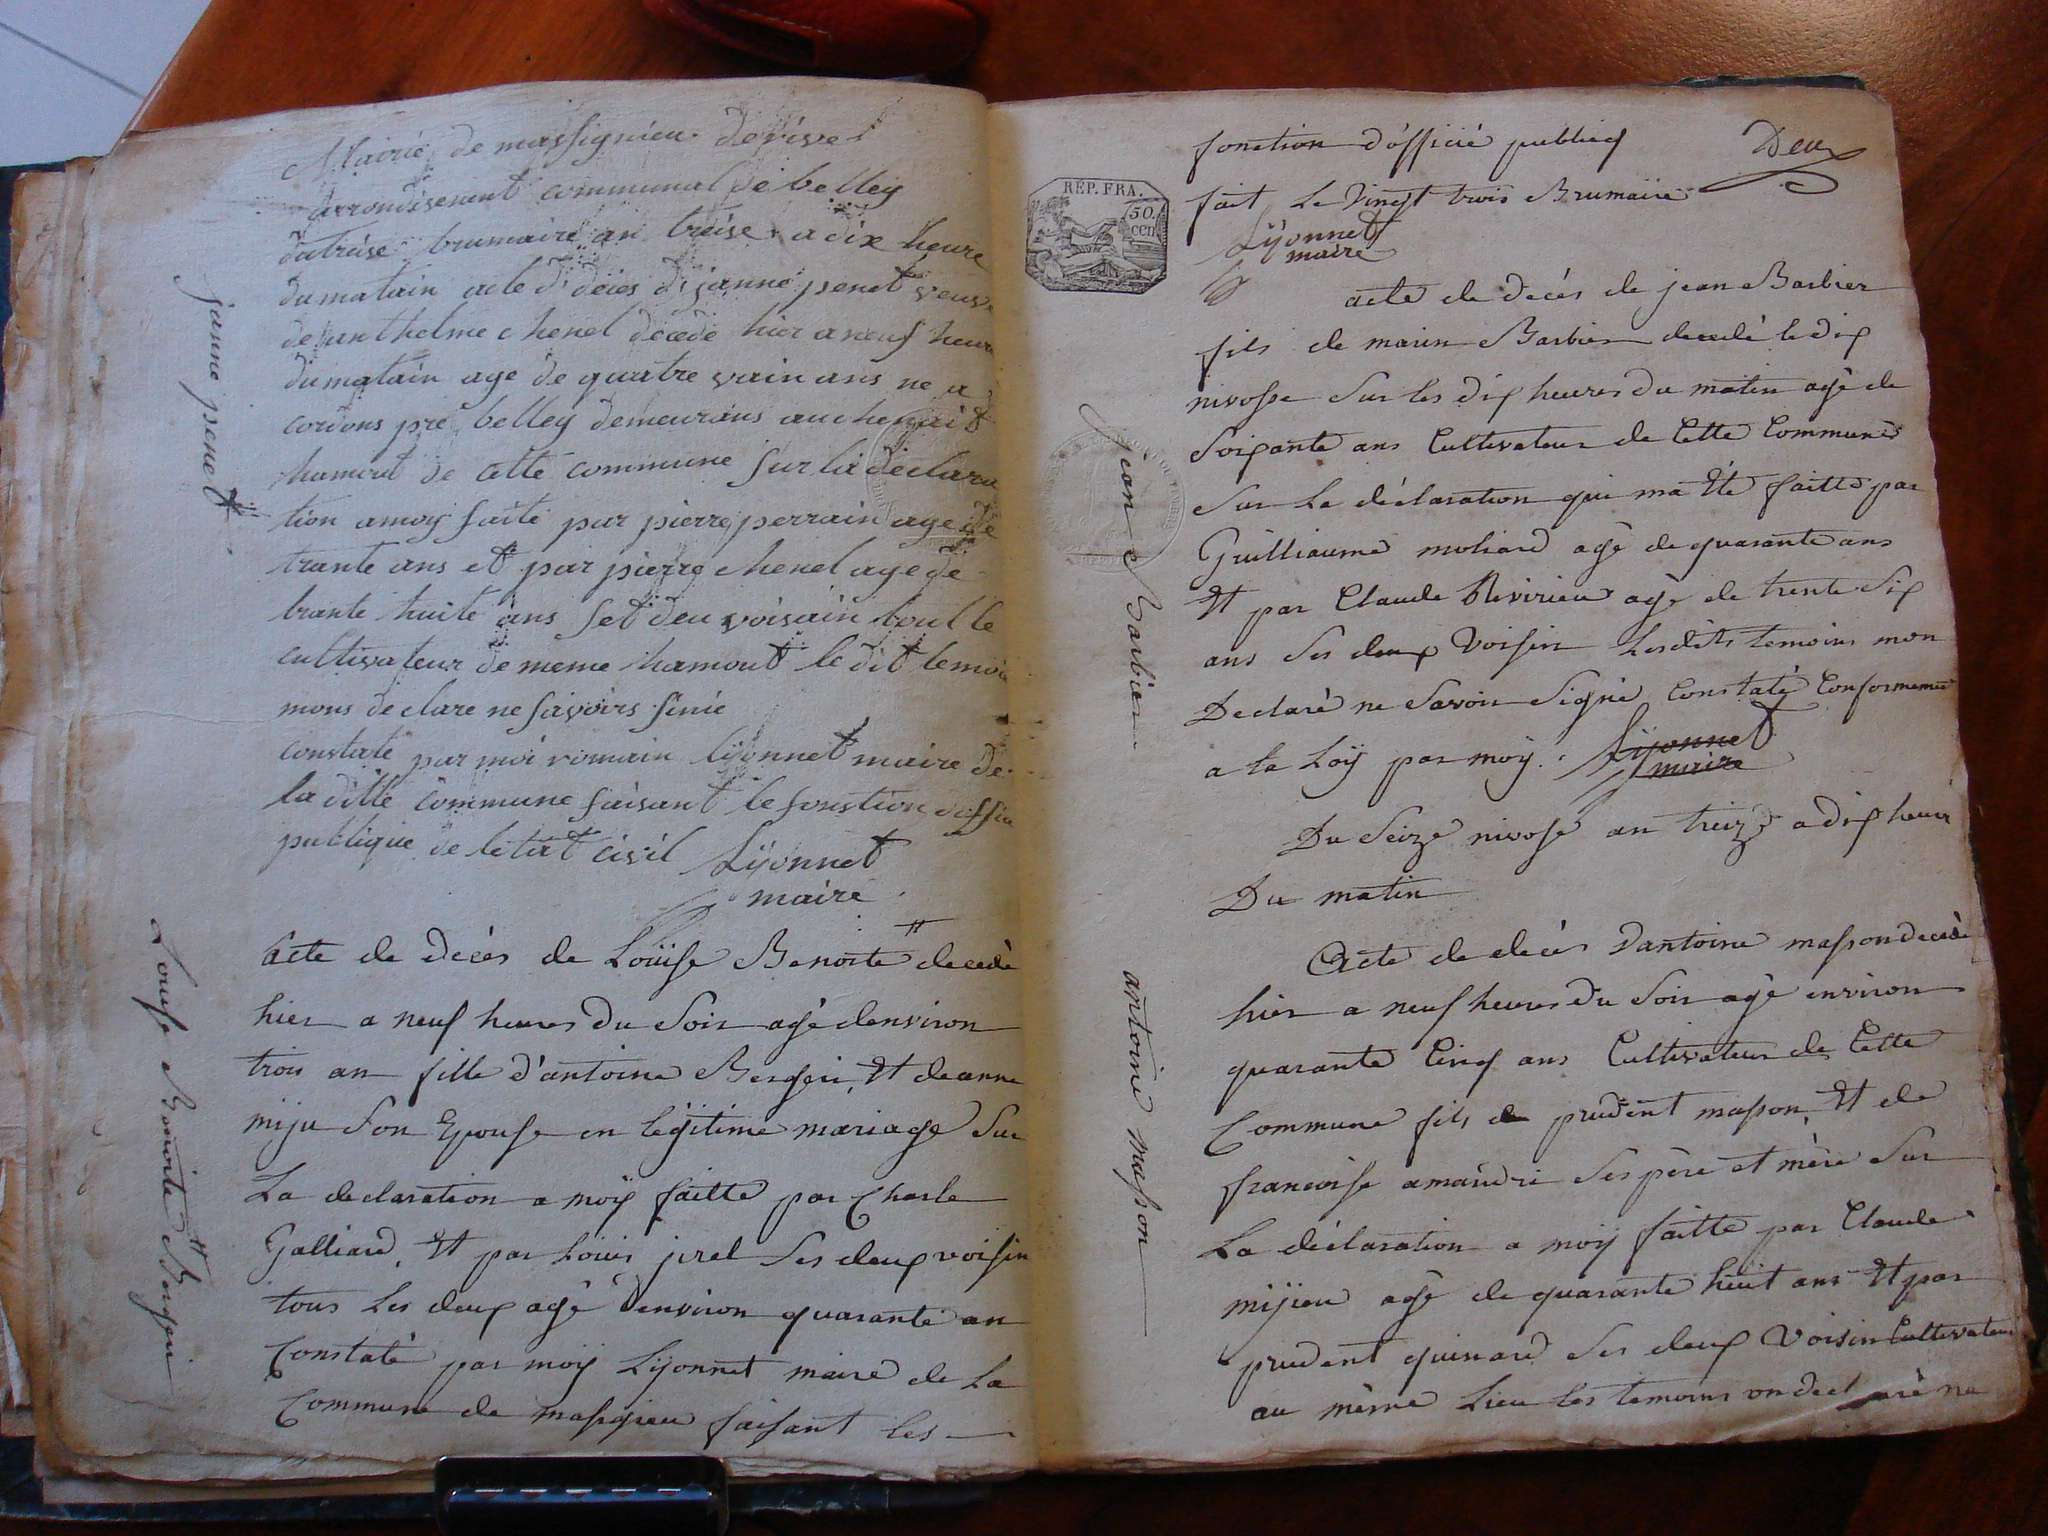 Mairie de massignieu de rive
arrondisement communal de belley
du treise brumaire an treise a dix heure
du matain acte di déces di janne penet veuve
de anthelme chenel decede hier a neuf heure
du matain age de quatre vain ans ne a
cordons pre belley demeurans au
hamout de cette commune sur la declara
tion a moy faite par pierre perrain age de
trante ans et par pierre chenel age de
trante huite ans set deu voisain tout le
cultivateur de meme hamout le dit temoi
mons declare ne savoirs sinie
constate par moi romain lyonnet maire de
la ditte commune faisant le fonstion doffis
publique de letat civil Lyonnet
maire
janne penet
acte de décés de Loüise Benoite decedé
hier a neuf heures du Soir agé denviron
trois an fille d'antoine Bergeri et de anne
miju Son Epouse en légitime mariage Sur
La declaration a moÿ faitte par Charle
Galliard, et par Louis jirel Ses deux voisin
tous Les deux agé denviron quarante an
Constaté par moy Lyonnet maire de La
Commune de massgieu faisant Les
Louise Benoite Bergeri
Deux
fonction d'officié publicq
fait Le Vingt trois Brumaire
Lyonnet
maire
REP. FRA.
50.
CEN
acte de decés de jean Barbier
fils de marin Barbier decedé le dix
nivosse Sur les dix heures du matin agé de
Soixante ans Cultivateur de Cette Commune
Sur La déclaration qui ma Eté faitte par
Guilliaume moliard agé de quarante ans
Et par Claude Rivirieu agé de trente Six
ans Ses deux Voisin Lesdits temoins mon
Declaré ne Savoir Signé Constaté Conformement
a la Loÿ par moÿ. Lyonnet
maire
jean Barbier
Du Seize nivose an treize a dix heure
Du matin
Acte de decés dantoine masson decedé
hier a neuf heures du Soir agé environ
quarante Cinq ans Cultivateur de Cette
Commune fils de prudent masson Et de
francoise amaudri Ses père et mère Sur
La déclaration a moÿ faitte par Claude
mijieu agé de quarante huit ans Et par
prudent quinard Ses deux Voisin Cultivateur
au même Lieu Les temoins on declaré ne
antoine masson